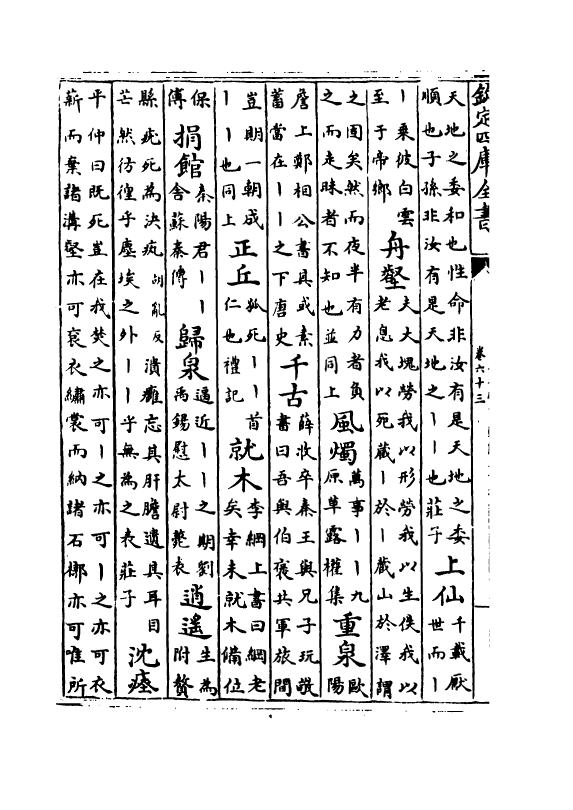 欽定四庫全書
卷六十三
天地之委和也性命非汝有是天地之委
順也子孫非汝有是天地之丨丨也莊子
上仙
千載厭
世而丨
丨乘彼白雲
至于帝鄉
舟壑
夫大塊勞我以形勞我以生俟我以
老息我以死藏丨於丨藏山於澤謂
之固矣然而夜半有力者負
之而走昧者不知也並同上
風燭
萬事丨丨九
原草露權集
重泉
歐
陽
詹上鄭相公書具或素
蓄當在丨丨之下唐史
千古
薛收卒秦王與兄子玩敬
書曰吾與伯褒共軍旅間
豈期一朝成
丨丨也同上
正丘
狐死丨丨首
仁也禮記
就木
李綱上書曰綱老
矣幸未就木備位
保
傅
捐館
秦陽君丨丨
舍蘇秦傳
歸泉
逼近丨丨之期劉
禹錫慰太尉薨表
逍遙
生為
附贅
縣疣死為決𤴯胡亂反潰癰忘其肝膽遺其耳目
芒然彷徨乎塵埃之外丨丨乎無為之表莊子
沈瘞
平仲曰既死豈在我焚之亦可丨之亦可丨之亦可衣
薪而棄諸溝壑亦可衮衣繡裳而納諸石槨亦可唯所